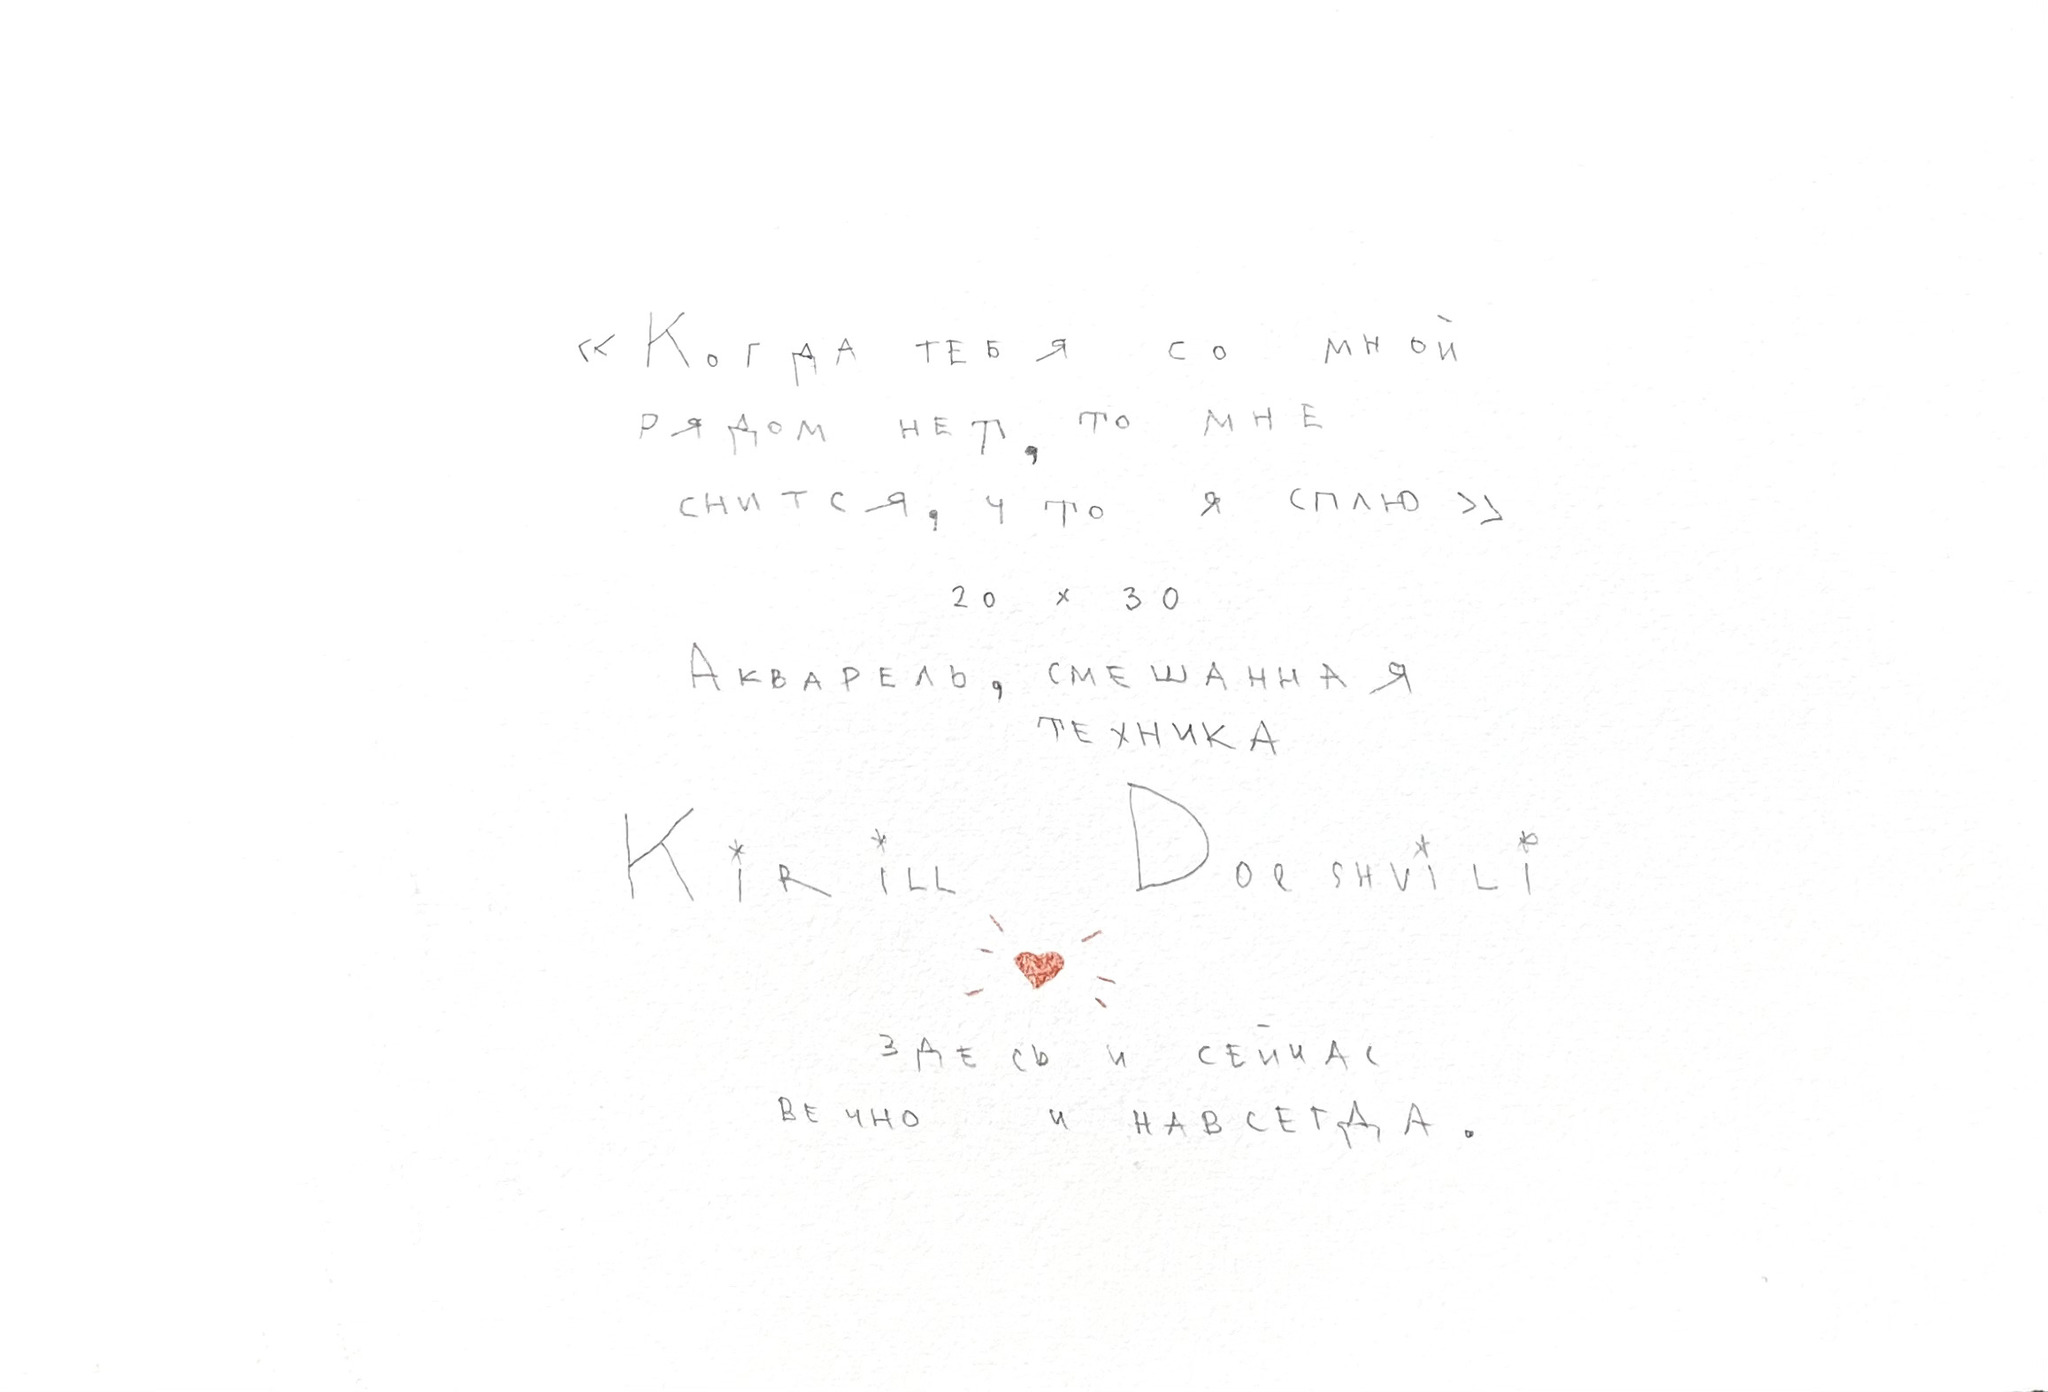 «Когда тебя со мной
рядом нет, то мне
снится, что я сплю»
20 x 30
Акварель, смешанная
техника
Kirill Dorshvili
здесь и сейчас
вечно и навсегда.